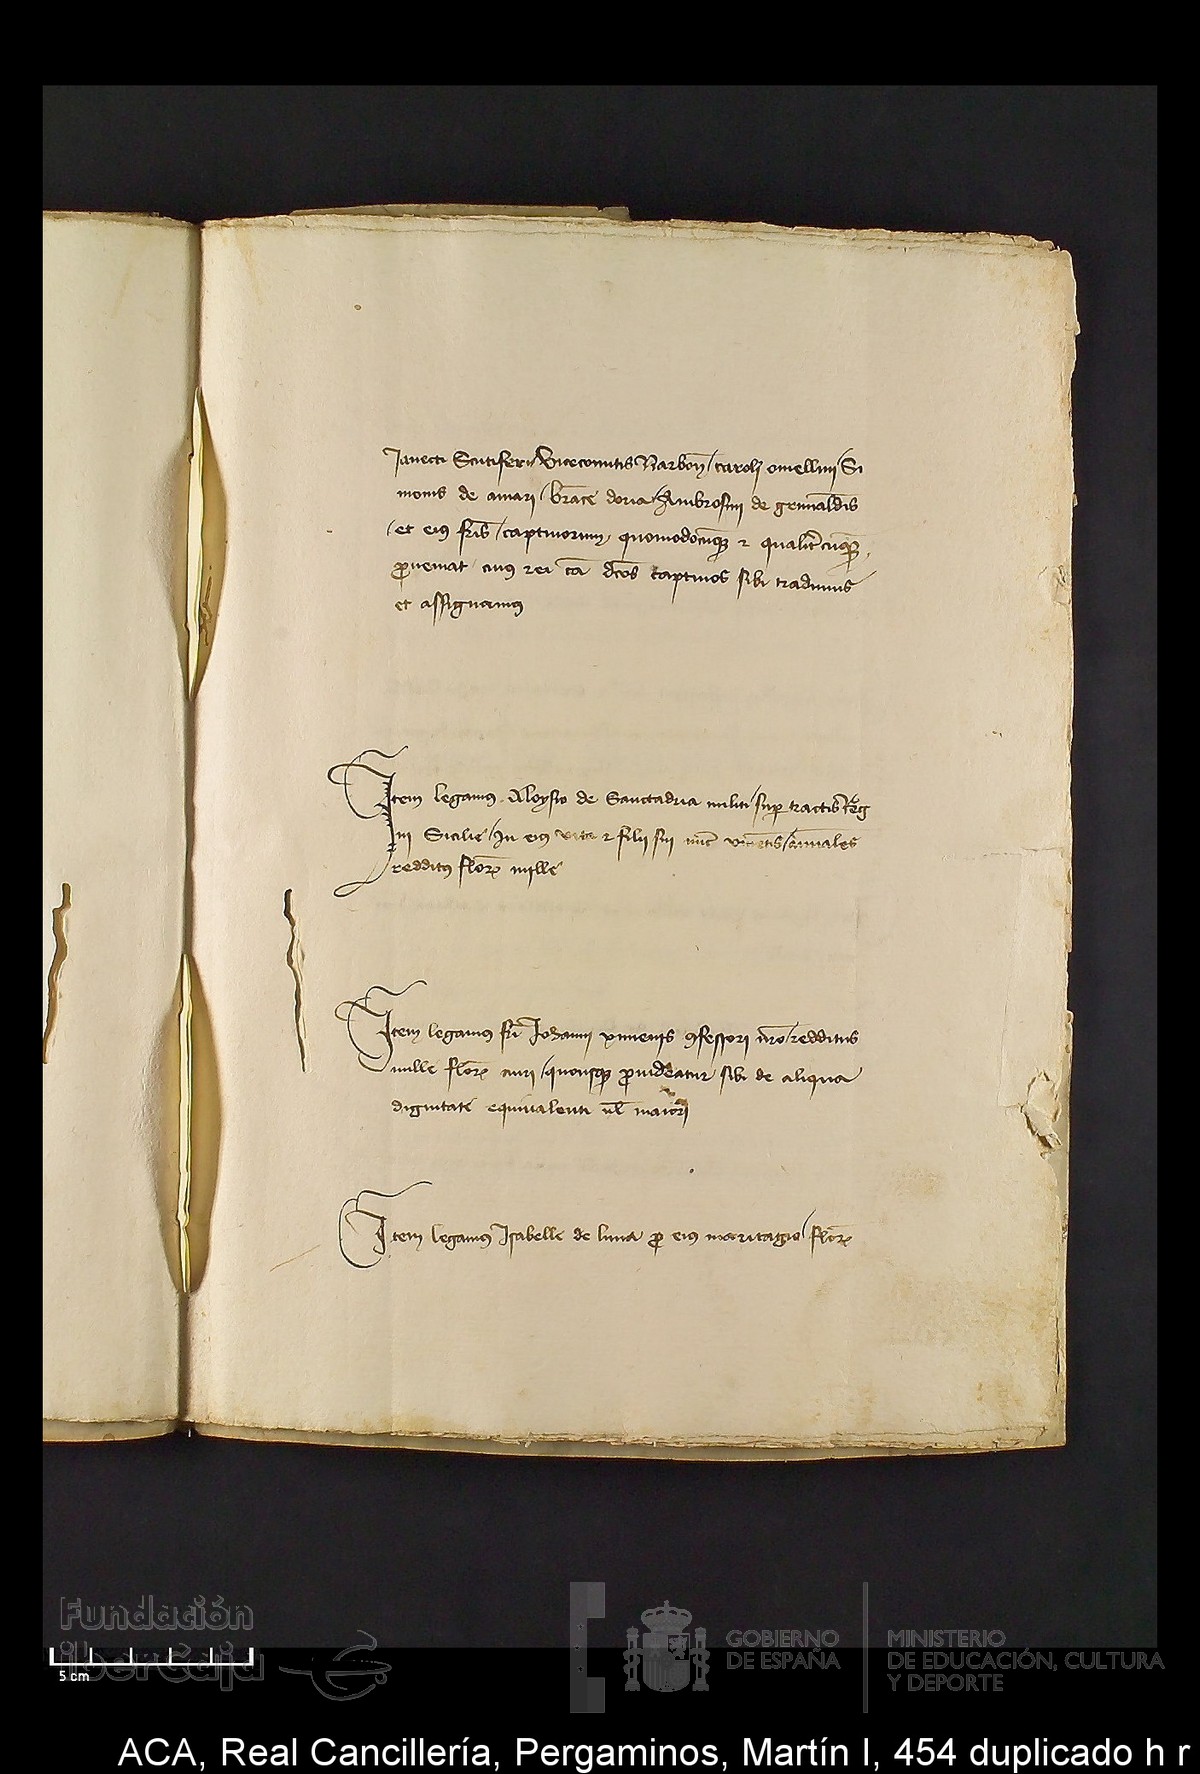 Janecti Scutiferi / Vicecomitis Narbon̄ / caroli omellini / Si
monis de amari / br̄ance doria / Ambrosini de grimaldis
/ et eiꝰ fr̄is / captiuorum, quomodocūqꝫ ⁊ qualit̄cūqꝫ
ꝓueniat cuiꝰ rei cā dc̄os captiuos sibi tradimus
et assignamꝰ
Item legamꝰ Aloysio de Sanctadria militi / suꝑ tractis Reg
ni Sicilie / In eiꝰ vita ⁊ filij sui nūc / annuales
redditꝰ florꝫ mille
Item legamꝰ fr̄i Johanni xımenis ꝯfessori nr̄o redditus
mille florꝫ auri / quousqꝫ ꝓuideatur sibi de aliqua
dignitate equiualenti ul̄ maiori
Item legamꝰ Isabelle de luna ꝓ eiꝰ maritagio / florꝫ
Fundación
iberCaja
5 cm
GOBIERNO
DE ESPAÑA
MINISTERIO
DE EDUCACIÓN, CULTURA
Y DEPORTE
ACA, Real Cancillería, Pergaminos, Martín I, 454 duplicado h r